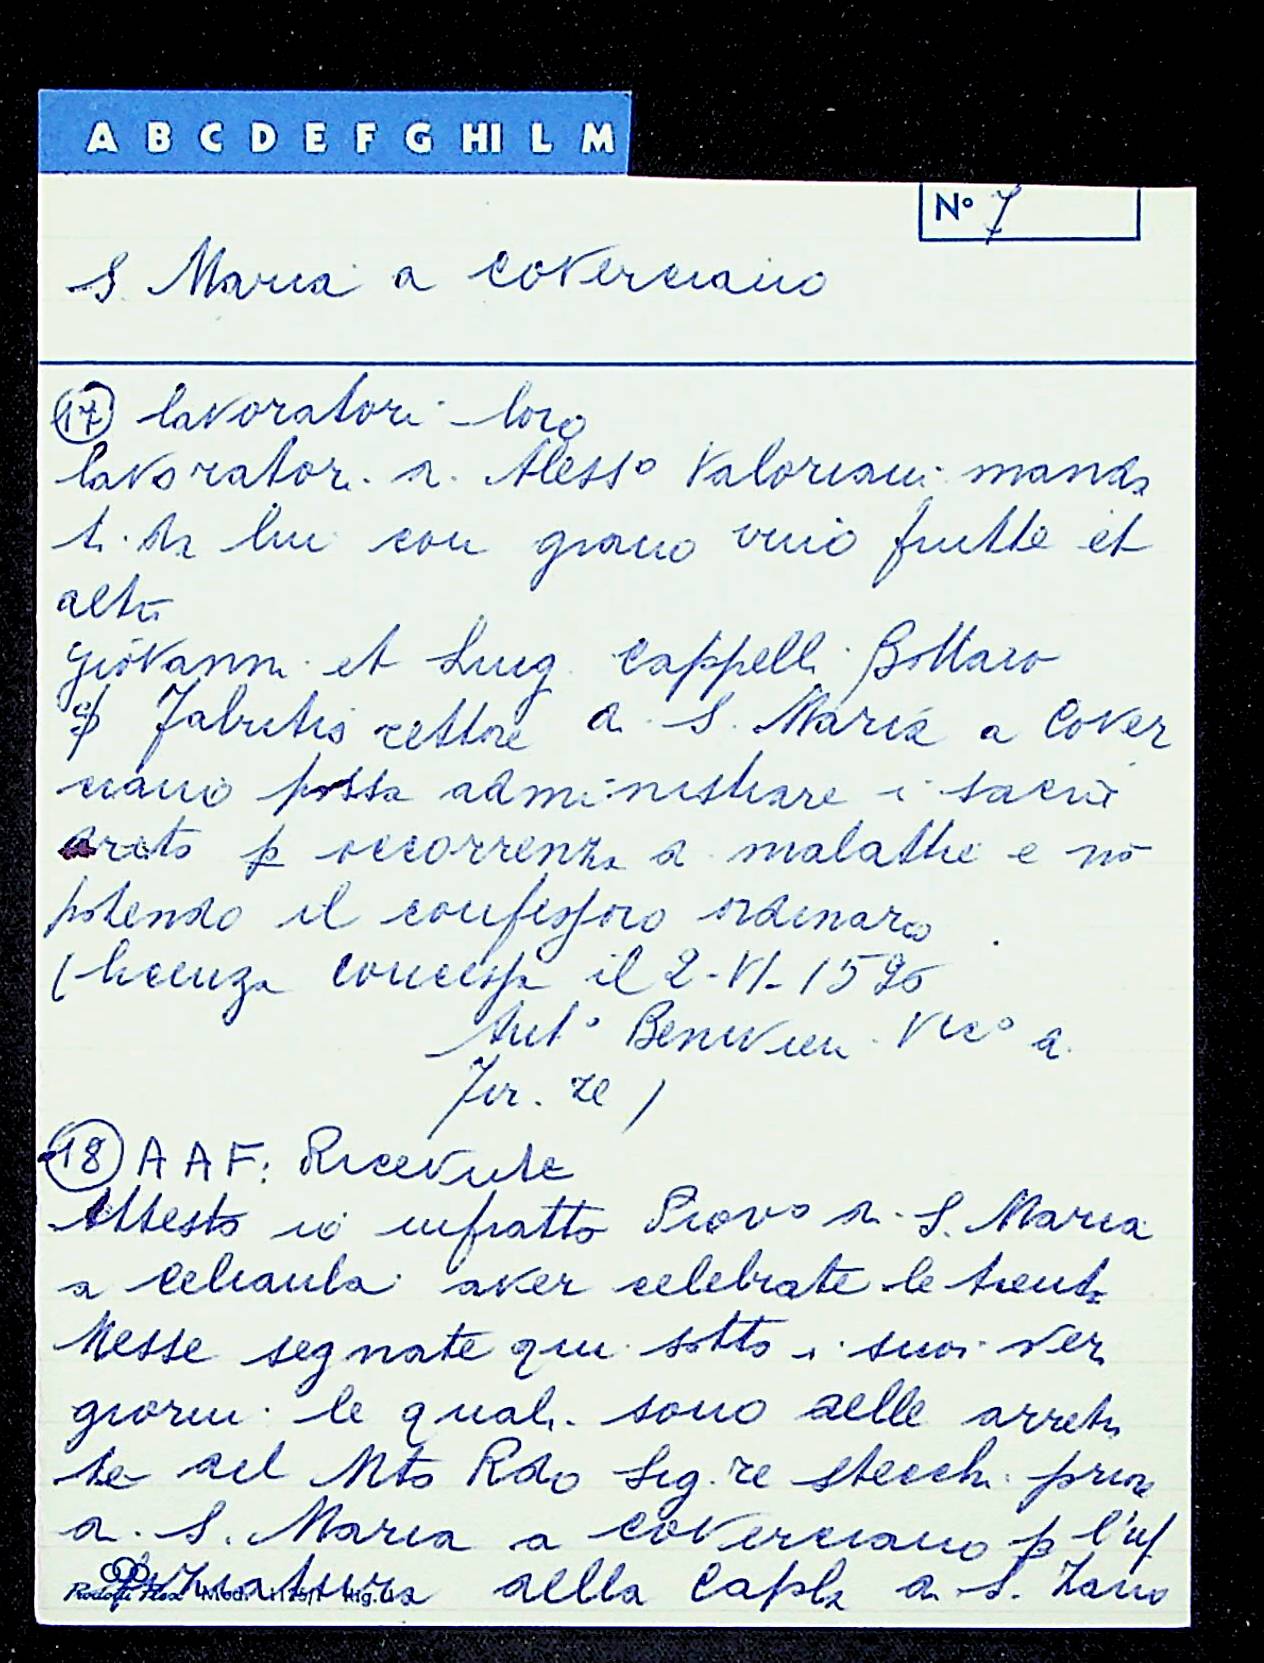 A B C D E F G HI L M
N° 7
S. Maria a Coverciano
17 lavoratori loro
lavoratori di Alesso Valoriani manda
ti da lui con grano vino frutte et
altri
Giovanni et Luigi Cappelli Bottaro
rettore di S. Maria a Cover
ciano possa administrare i sacri
p occorrenza di malattie e nō
potendo il confessoro ordinaro
(licenza concessa il 2-VI-1590
Ant° Benivieni Vic° di
Fir.ze)
18 AAF: Ricevute
Attesto io infratto Piov° di S. Maria
a Celiaula aver celebrate le trenta
Messe segnate qui sotto i suoi ver
giorni le quali sono delle arretra
te del Mto Rdo Sig.re Stecchi priore
di S. Maria a Coverciano p l'uf
della Capla di S. Zano